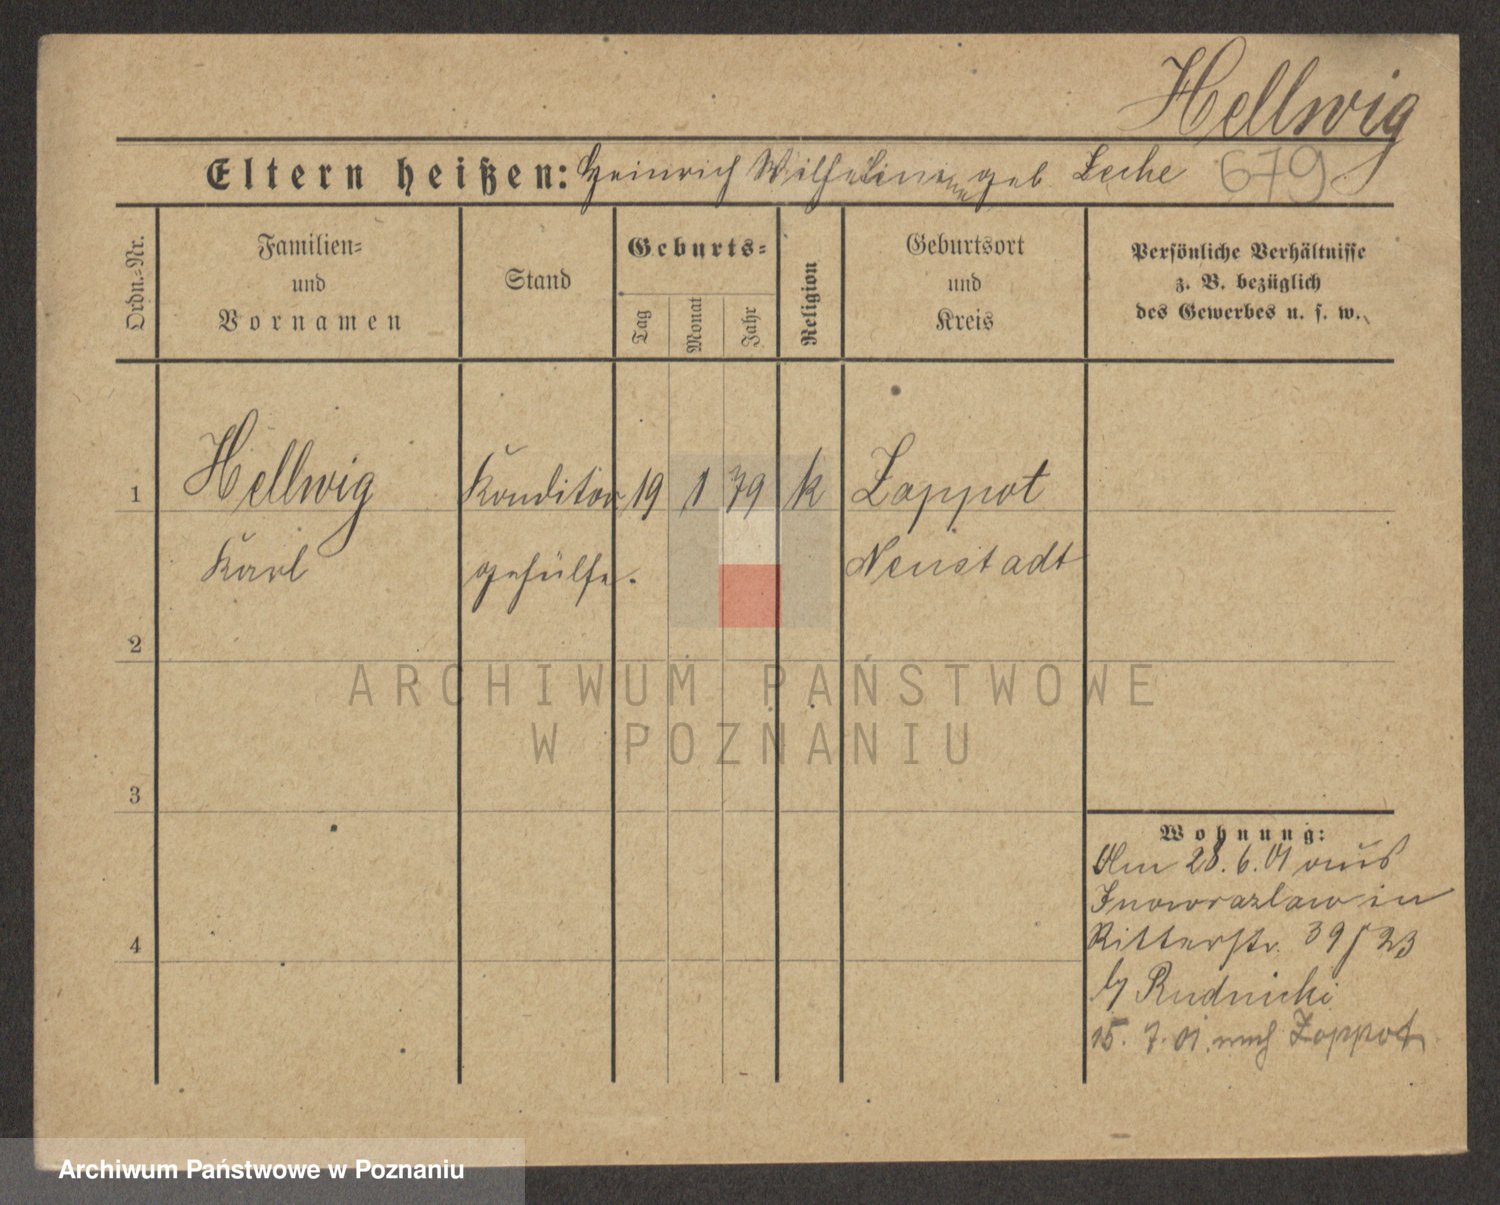 Hellwig
Eltern heißen: Heinrich Wilhelmine geb Leche 679
Ordn.-Nr.
Familien-
und
Vornamen
Stand
Geburts-
Tag
Monat
Jahr
Religion
Geburtsort
und
Kreis
Persönliche Verhältnisse
z. B. bezüglich
des Gewerbes u. s. w.
1 Hellwig Konditor 19 1 79 k Zoppot
Karl gehülfe. Neustadt
2
ARCHIWUM PAŃSTWOWE
W POZNANIU
3
Wohnung:
Am 28.6.01 aus
Inowrazlaw in
Ritterstr. 39/23
4
b/ Rudnicki
15. 7. 01. nach Zoppot
Archiwum Państwowe w Poznaniu